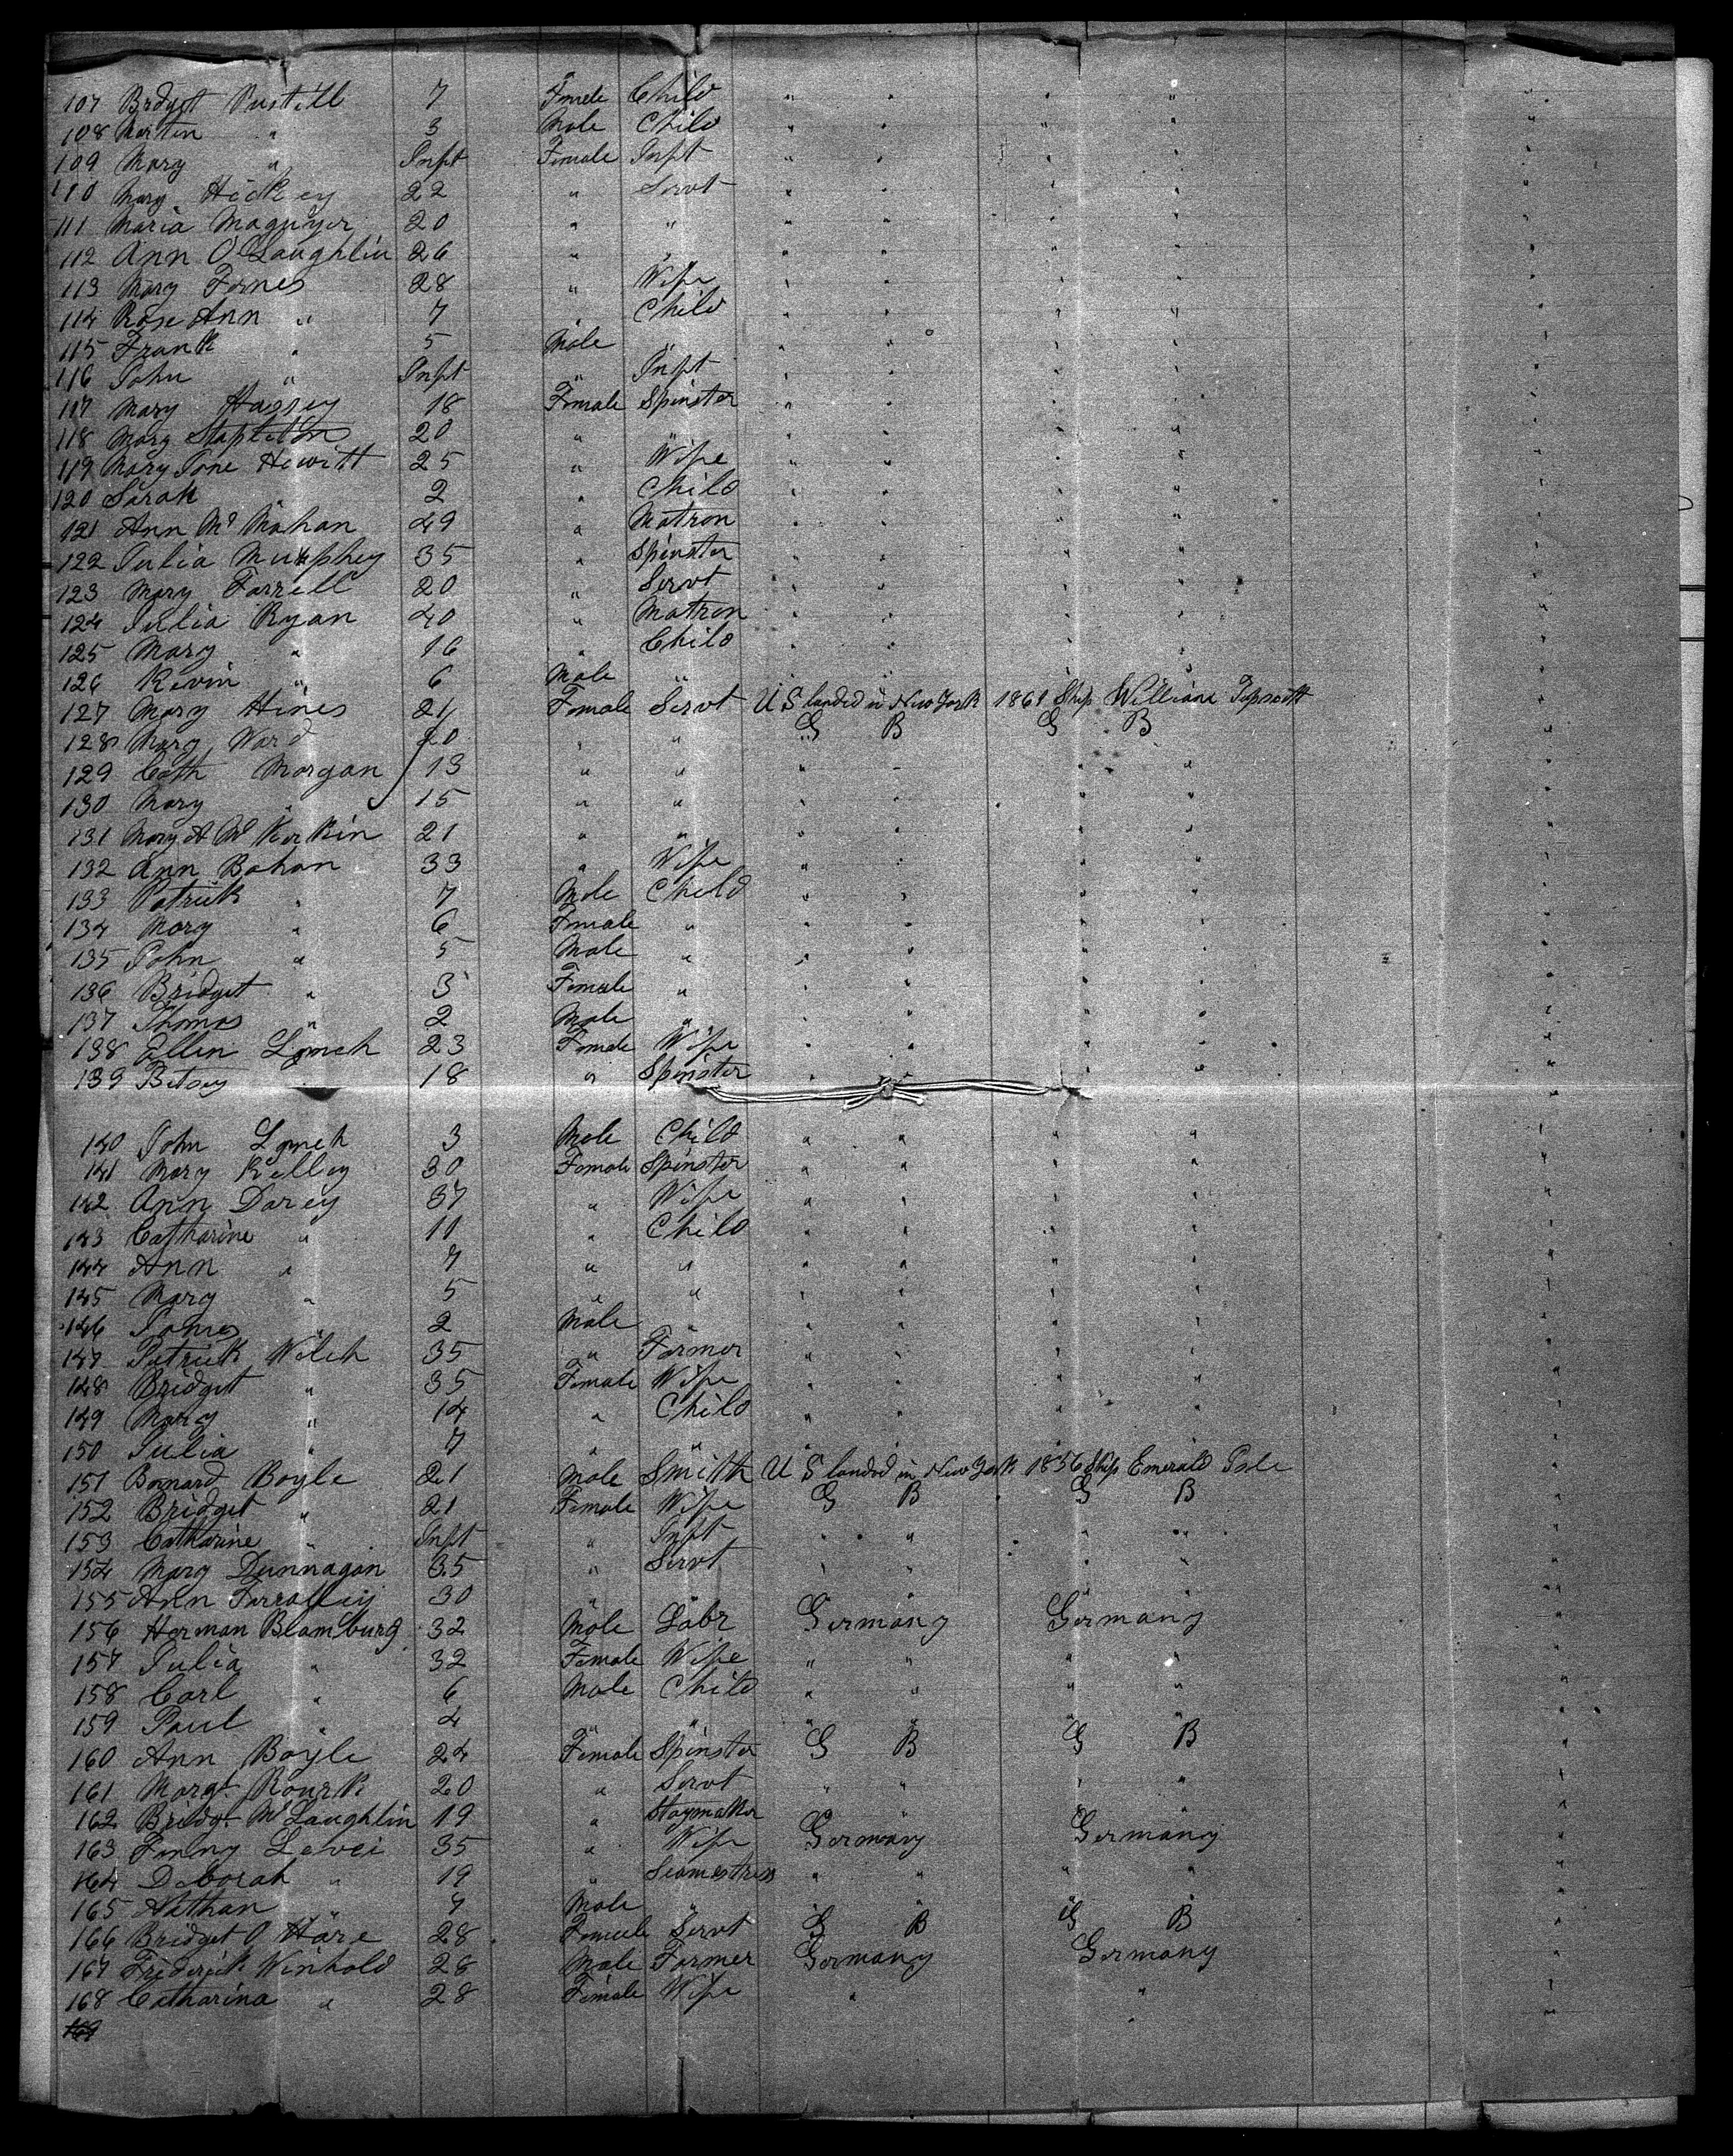 107 Brdget Pustill 7 Female Child " " " " "
108 Martin " 3 Male Child " " " " "
109 Mary " Inft Female Inft " " " " "
110 Mary Hickey 22 " Servt " " " " "
111 Maria Maguyer 20 " " " " " " "
112 Ann O'Laughlin 26 " " " " " " "
113 Mary Fornes 28 " Wife " " " " "
114 Rose Ann " 7 " Child " " " " "
115 Frank " 5 Male " " " " " "
116 John " Inft " Inft " " " " "
117 Mary Hassey 18 Female Spinster " " " " "
118 Mary Stapleton 20 " " " " " " "
119 Mary Jane Hewitt 25 " Wife " " " " "
120 Sarah " 2 " Child " " " " "
121 Ann Mc Mahan 49 " Matron " " " " "
122 Julia Murphey 35 " Spinster " " " " "
123 Mary Farrell 20 " Servt " " " " "
124 Julia Ryan 40 " Matron " " " " "
125 Mary " 16 " Child " " " " "
126 Kevin " 6 Male " " " " " "
127 Mary Hines 21 Female Servt U S landed in New York 1861 Ship William Tapscott "
128 Mary Ward 20 " " G B G B "
129 Cath Morgan 13 " " " " " " "
130 Mary " 15 " " " " " " "
131 Mary A Mc Kerkin 21 " " " " " " "
132 Ann Bohan 33 " Wife " " " " "
133 Patrick " 7 Male Child " " " " "
134 Mary " 6 Female " " " " " "
135 John " 5 Male " " " " " "
136 Bridget " 3 Female " " " " " "
137 Thomas " 2 Male " " " " " "
138 Ellen Lynch 23 Female Wife " " " " "
139 Betsey 18 " Spinster " " " " "
140 John Lynch 3 Male Child " " " " "
141 Mary Kelley 30 Female Spinster " " " " "
142 Ann Darey 37 " Wife " " " " "
143 Catharine " 11 " Child " " " " "
144 Ann " 7 " " " " " " "
145 Mary " 5 " " " " " " "
146 James " 2 Male " " " " " "
147 Patrick Welch 35 " Farmer " " " " "
148 Bridget " 35 Female Wife " " " " "
149 Mary " 14 " Child " " " " "
150 Julia " 7 " " " " " " "
151 Bernard Boyle 21 Male Smith U S landed in New York 1856 Ship Emerald Isle "
152 Bridget " 21 Female Wife G B G B "
153 Catharine " Inft " Inft " " " " "
154 Mary Dunnagan 35 " Servt " " " " "
155 Ann 30 " " " " " " "
156 Herman Blamburg 32 Male Labr Germany Germany "
157 Julia " 32 Female Wife " " " " "
158 Carl " 6 Male Child " " " " "
159 Paul " 4 " " " " " " "
160 Ann Boyle 24 Female Spinster G B G B "
161 Margt Rourk 20 " Servt " " " " "
162 Bridgt McLaughlin 19 " Staymaker " " " " "
163 Fanny Levei 35 " Wife Germany Germany "
164 Deborah " 19 " Seamestress " " " " "
165 Nathan " 7 Male " " " " " "
166 Bridget O Hare 28 Female Servt G B G B "
167 Frederick Winhold 28 Male Farmer Germany Germany "
168 Catharina " 28 Female Wife " " "
169